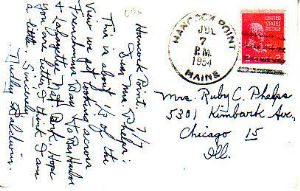 Hancock Point, 7/7
Dear Mrs. Phelps:
This is about 1/3 of the
view we get looking across
Frenchman Bay to Bar Harbor
& Lafayette Nat. Park. Hope
you are better. I think I am
a little.
Sincerely,
Nelly Baldwin.
HANCOCK POINT
JUL
7
P.M.
1954
MAINE
Mrs. Ruby C. Phelps
5301 Kimbark Ave.,
Chicago 15
Ill.